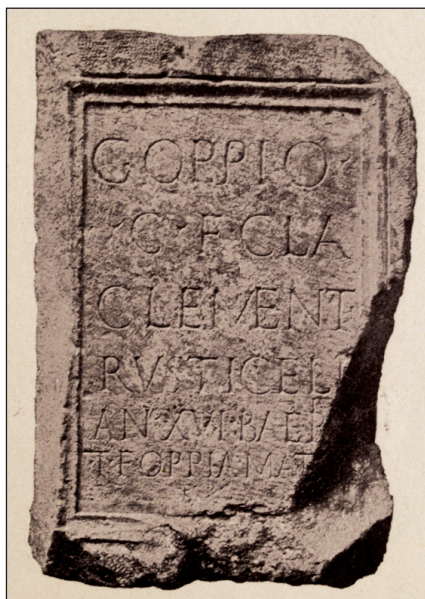 C OPPIO
C F CLA
CLEMENT
RVSTICELI
AN XVI
T F OPPIA MAT